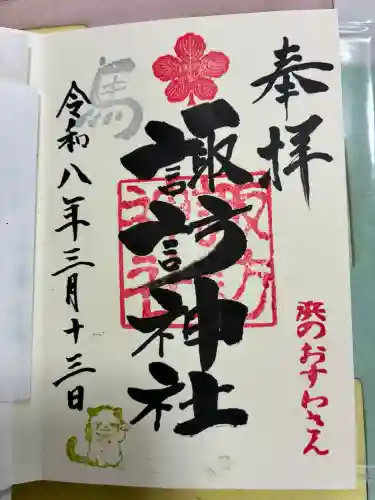 奉拝
浜のおすわさん
諏訪神社
馬
令和八年三月十三日